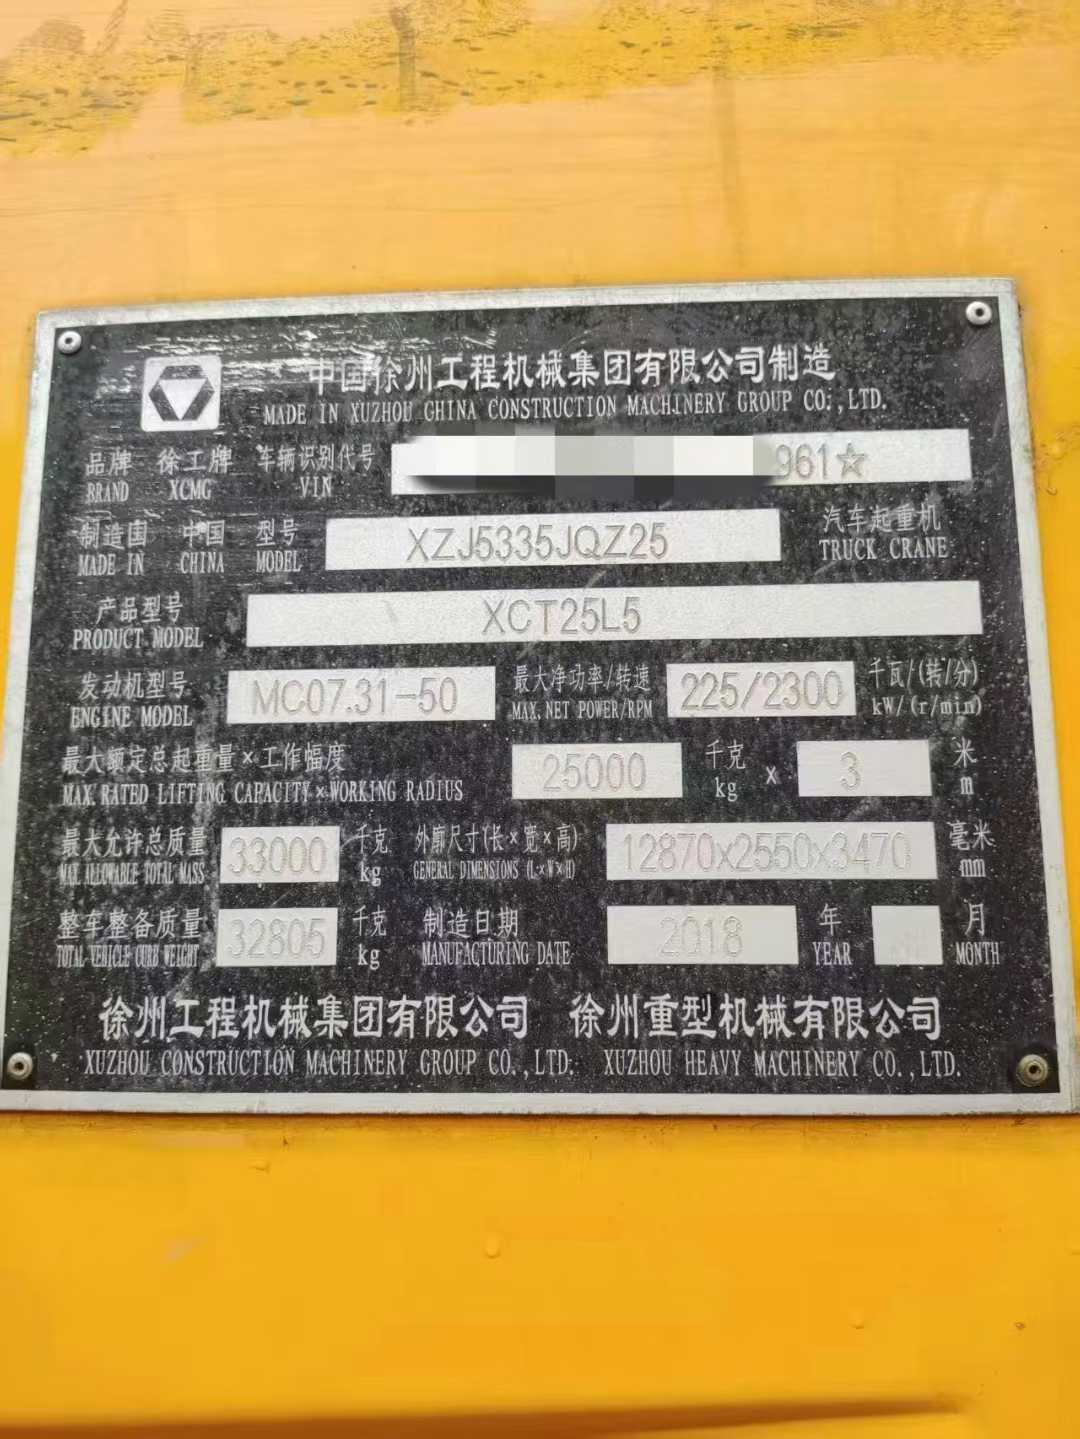 中国徐州工程机械集团有限公司制造
MADE IN XUZHOU CHINA CONSTRUCTION MACHINERY GROUP CO.,LTD.
品牌 徐工牌 车辆识别代号 961☆
BRAND XCMG VIN
制造国 中国 型号 XZJ5335JQZ25 汽车起重机
MADE IN CHINA MODEL TRUCK CRANE
产品型号 XCT25L5
PRODUCT MODEL
发动机型号 MC07.31-50 最大净功率/转速 225/2300 千瓦/(转/分)
ENGINE MODEL MAX.NET POWER/RPM kW/(r/min)
最大额定总起重量×工作幅度 25000 千克 x 3 米
MAX.RATED LIFTING CAPACITY×WORKING RADIUS kg m
最大允许总质量 33000 千克 外廓尺寸(长×宽×高) 12870x2550x3470 毫米
MAX.ALLOWABLE TOTAL MASS kg GENERAL DIMENSIONS (L×W×H) mm
整车整备质量 32805 千克 制造日期 2018 年 月
TOTAL VEHICLE CURB WEIGHT kg MANUFACTURING DATE YEAR MONTH
徐州工程机械集团有限公司 徐州重型机械有限公司
XUZHOU CONSTRUCTION MACHINERY GROUP CO.,LTD. XUZHOU HEAVY MACHINERY CO.,LTD.